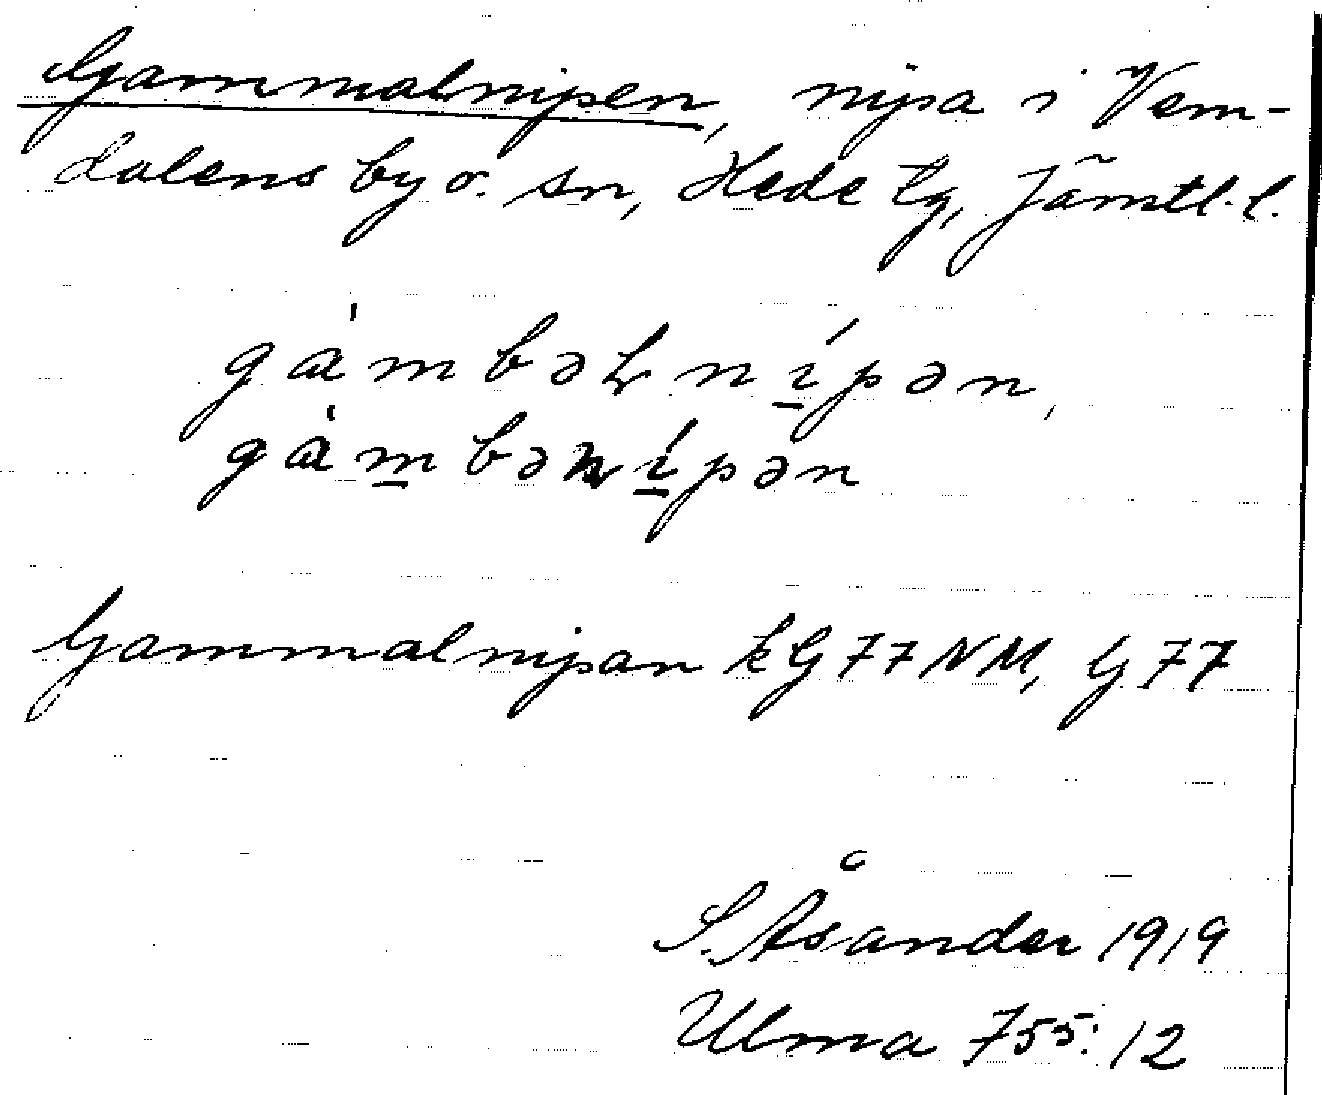 Gammalnipen, nipa i Vem-
dalens by o. sn, Hede tg, Jämtl. l.
gàmbəɬnípən,
gàm̲bənípən
Gammalnipan kG77NM, G77
S. Åsander 1919
Ulma 755:12